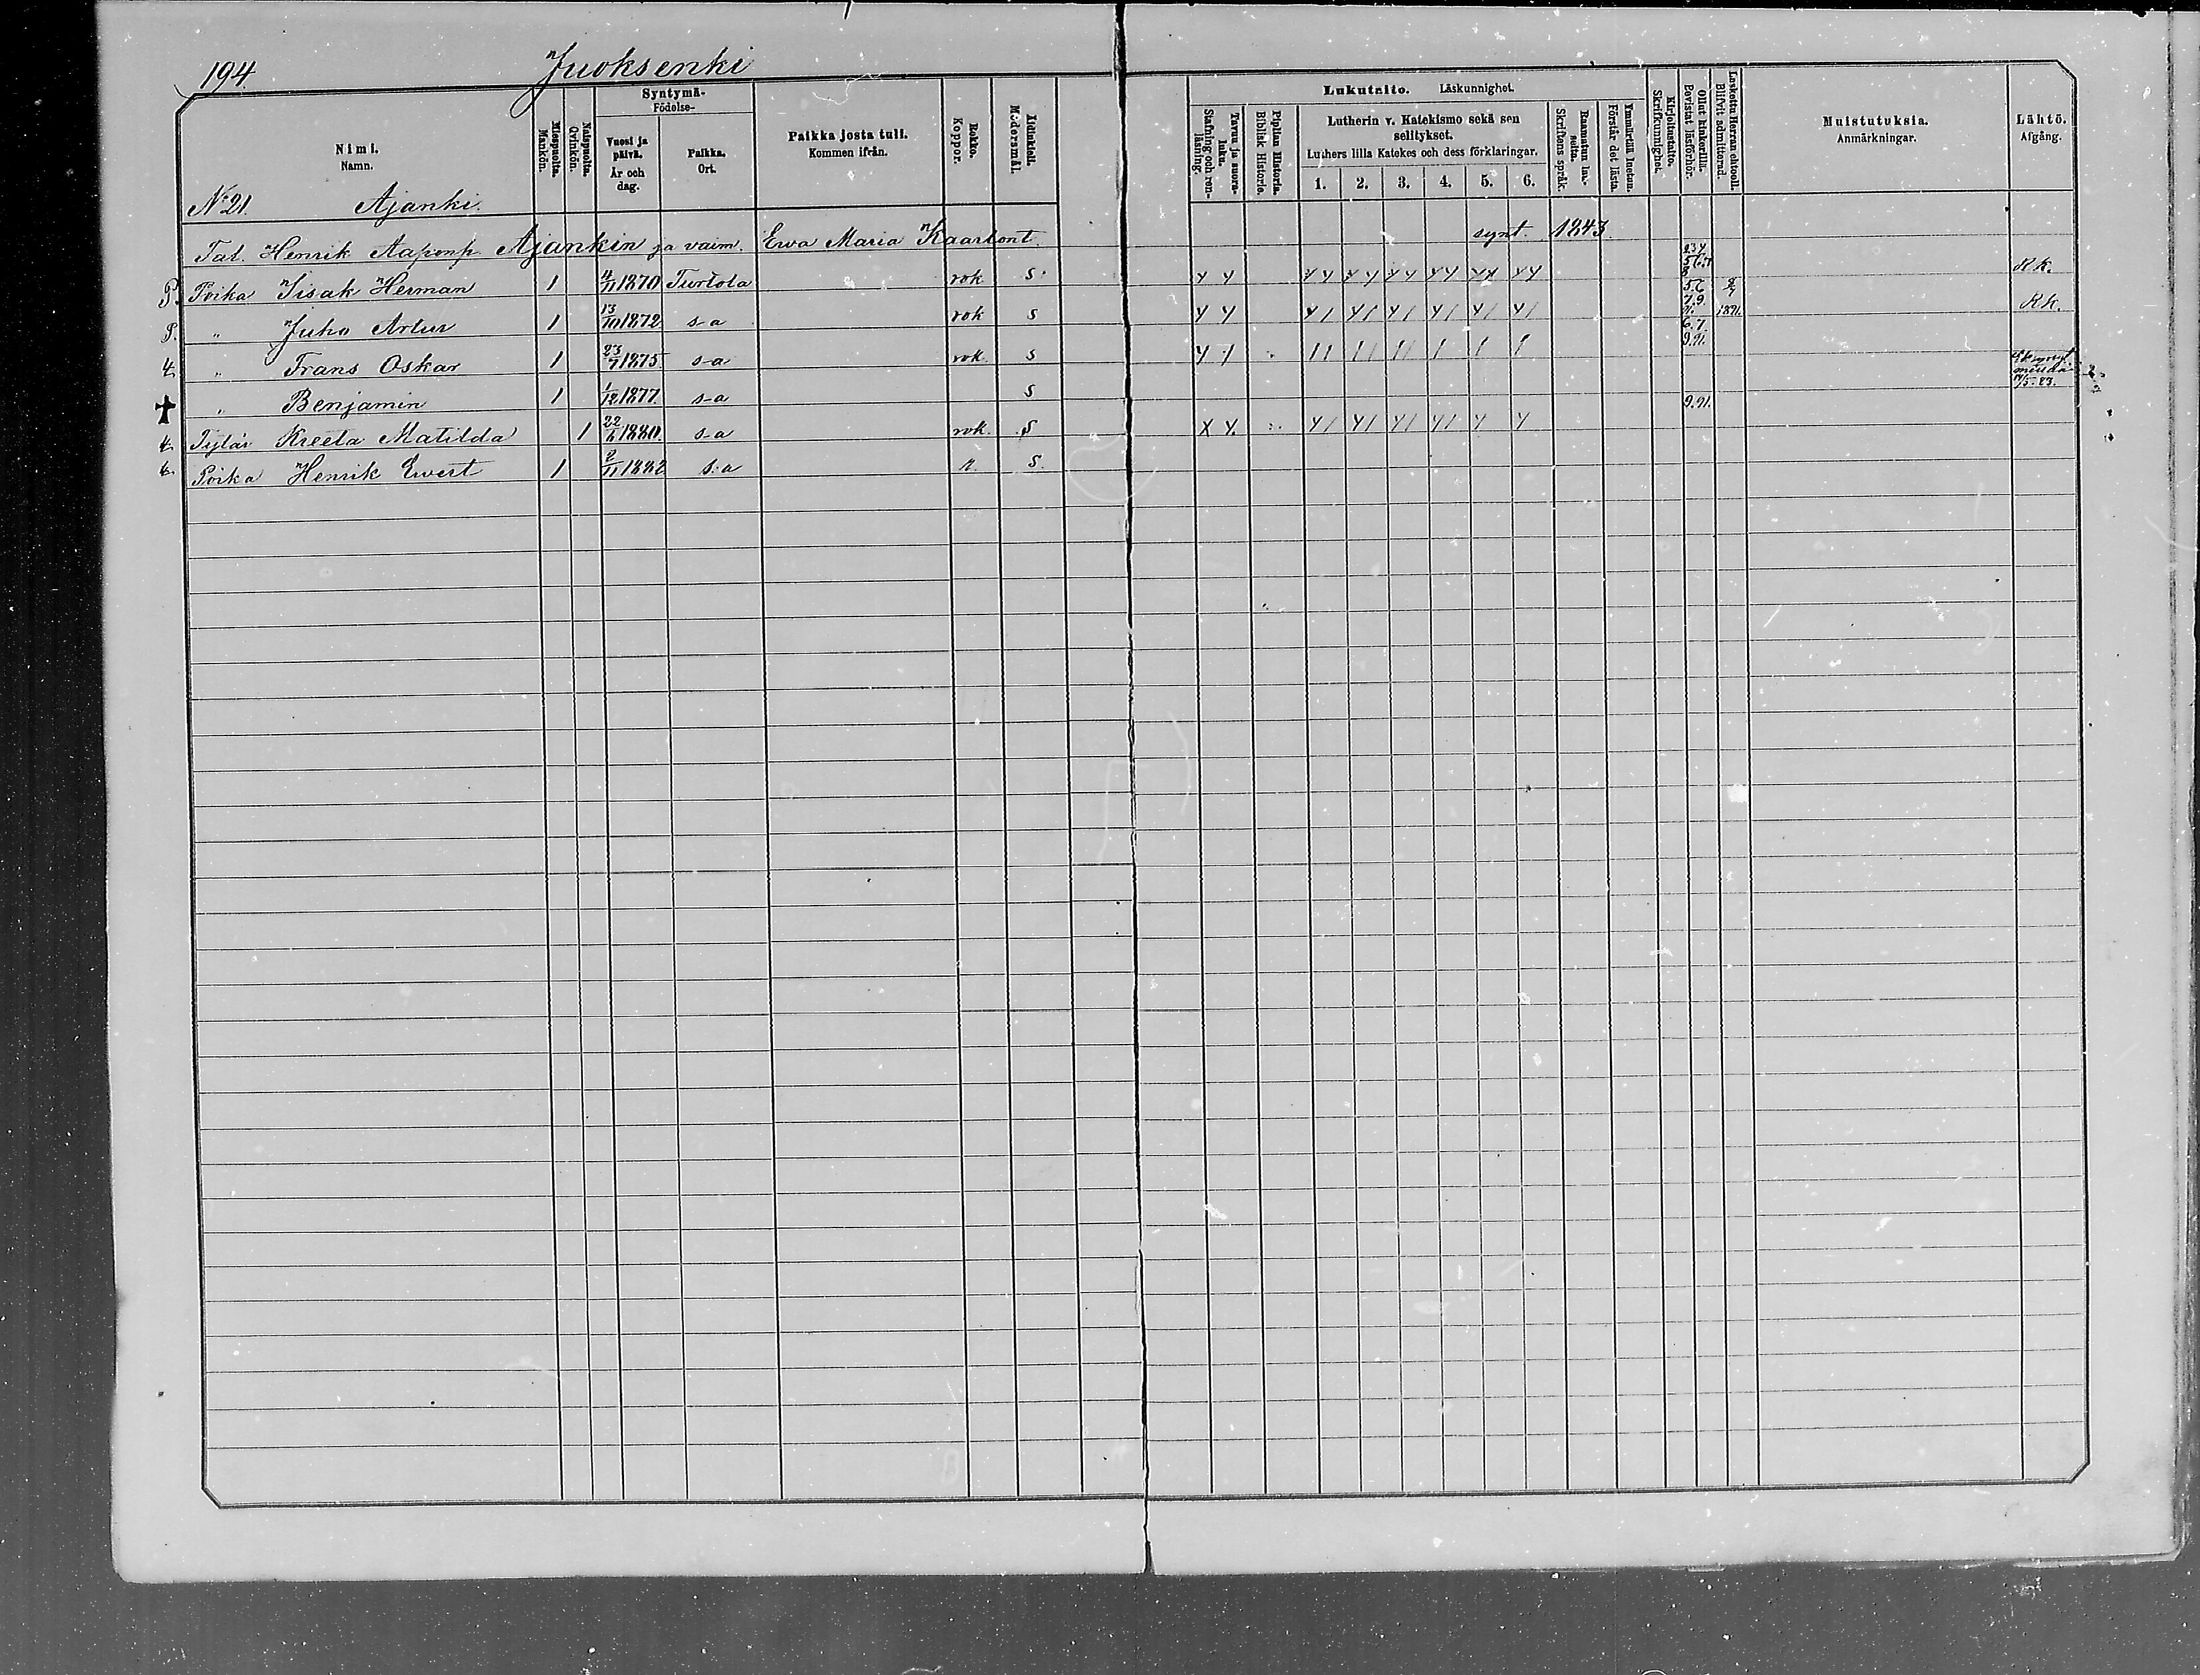 194.
Juoksenki
Nimi.
Namn.
Miespuolta.
Mankön.
Naispuolta.
Qvinkön.
Syntymä-
Födelse-
Vuosi ja
päivä.
År och
dag.
Paikka.
Ort.
Paikka josta tuli.
Kommen ifrån.
Rokko.
Koppor.
Äidinkieli.
Modersmål.
Lukutaito. Läskunnighet.
Tavuu ja suora-
luku.
Stafning och ren-
läsning.
Piplian Historia.
Biblisk Historie.
Lutherin v. Katekismo sekä sen
selitykset.
Luthers lilla Katekes och dess förklaringar.
1. 2. 3. 4. 5. 6.
Raamatun lu-
seita.
Skriftens språk.
Ymmärtää luetun.
Förstår det lästa.
Kirjoitustaito.
Skrifkunnighet.
Ollut kinkerillä.
Bevistat läsförhör.
Laskettu Herran ehtooll.
Blifvit admitterad.
Muistutuksia.
Anmärkningar.
Lähtö.
Afgång.
No 21. Ajanki.
Tal. Henrik Aaponp. Ajankin ja vaim. Ewa Maria Kaarlont. synt. 1843
P. Poika Iisak Herman 1 4/11 1870 Turtola rok s. R k.
P. " Juho Artur 1 13/10 1872 s-a rok s 5.6 7.9. 1891 R k.
4. " Frans Oskar 1 23/7 1875 s-a rok. s 6.7. 9.91.
† " Benjamin 1 1/12 1877 s-a s
4. Tytär Kreeta Matilda 1 22/6 1880. s-a rok. s 9.91.
Poika Henrik Ewert 1 2/11 1882 s-a r s.